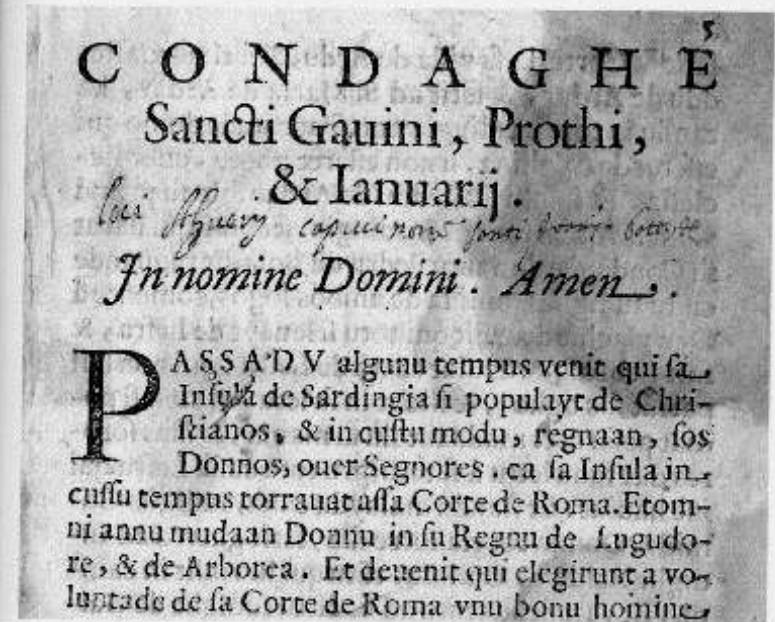 5
CONDAGHÉ
Sancti Gauini, Prothi,
& Ianuarij.
In nomine Domini. Amen.
PASSADV algunu tempus venit qui sa
Insula de Sardingia si populayt de Chri-
stianos, & in custu modu, regnaan, sos
Donnos, ouer Segnores, ca sa Insula in
cussu tempus torrauat assa Corte de Roma. Etom-
ni annu mudaan Donnu in su Regnu de Lugudo-
re, & de Arborea. Et deuenit qui elegirunt a vo-
luntade de sa Corte de Roma vnu bonu homine